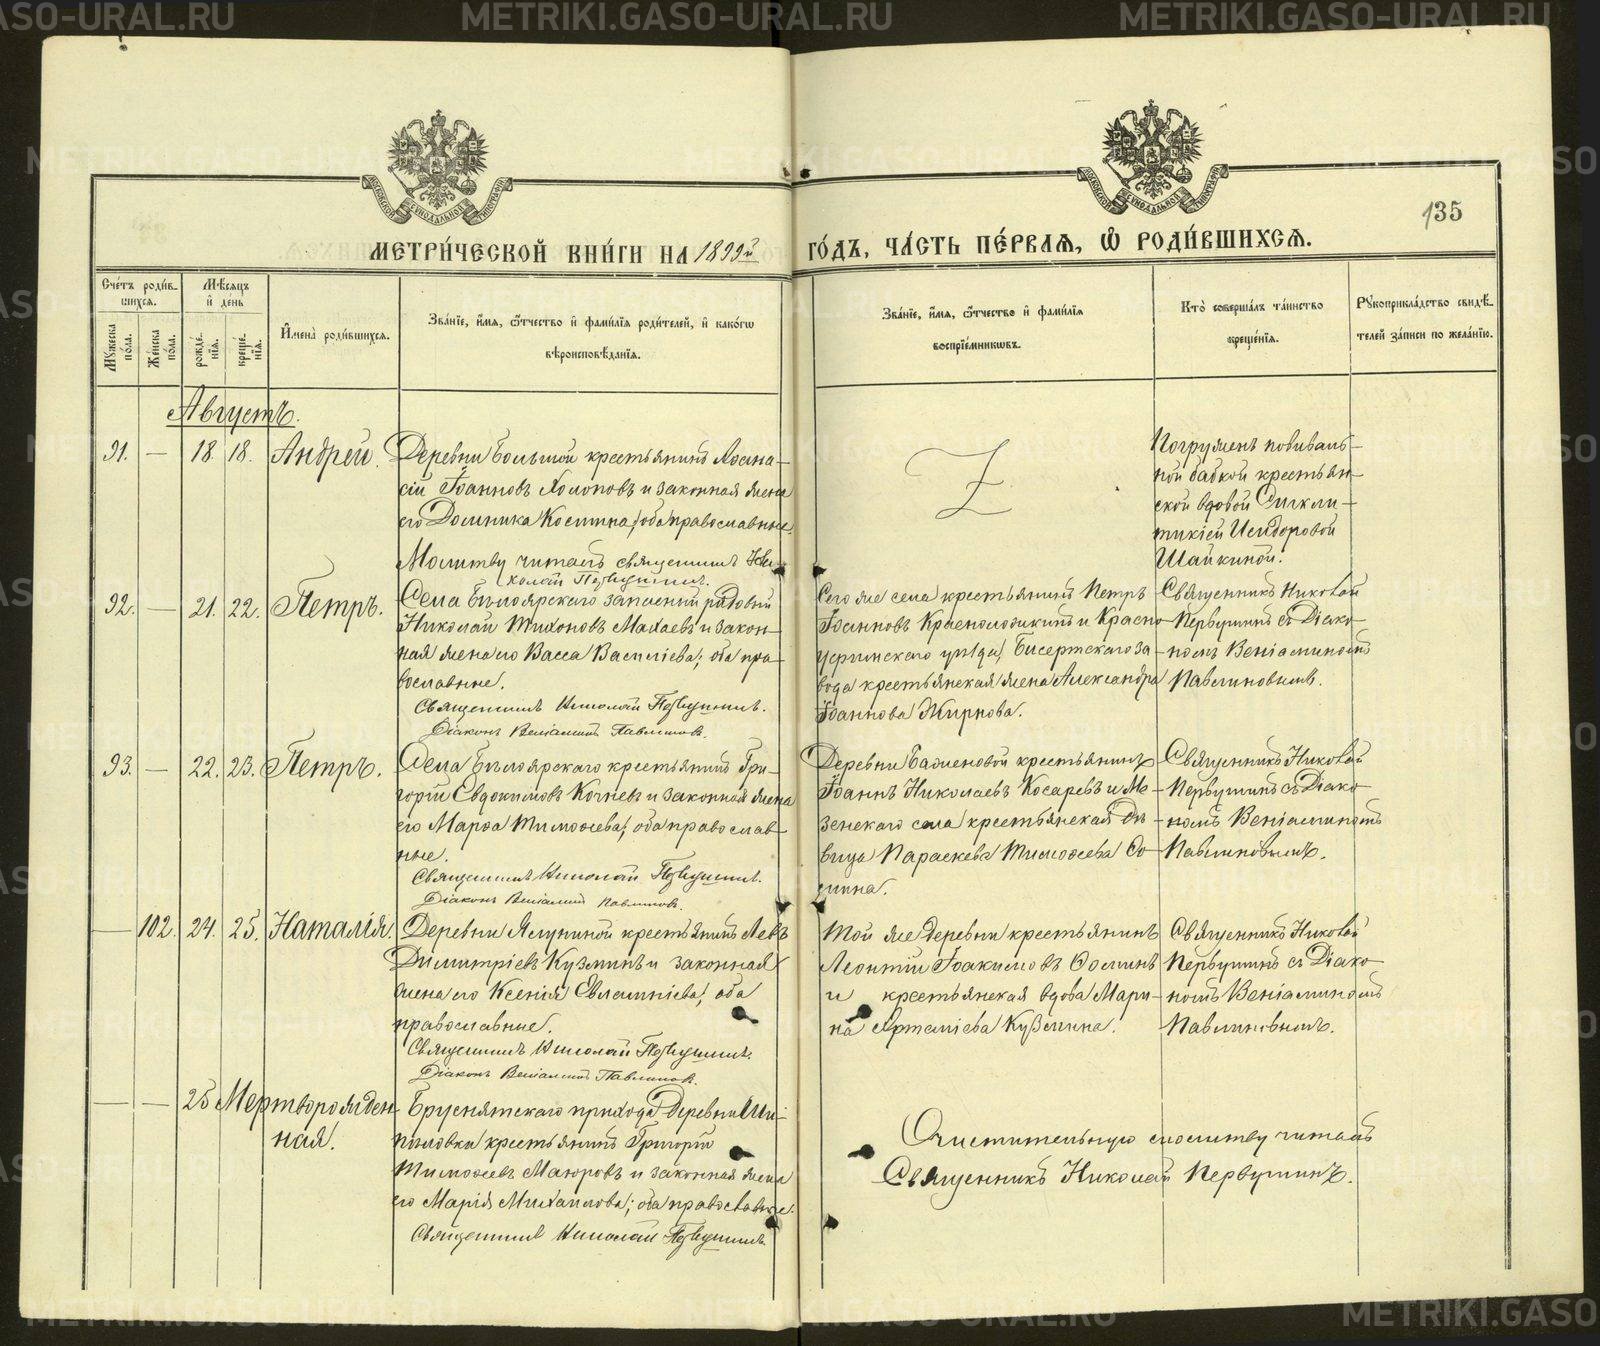 METRIKI.GASO-URAL.RU
135
МЕТРИ́ЧЕСКОЙ КНИ́ГИ НА 1899й ГО́ДЪ, ЧА́СТЬ ПЕ́РВАЯ, Ѡ РОДИ́ВШИХСЯ.
Сче́тъ роди́вшихся.
Му́жеска по́ла.
Же́нска по́ла.
Мѣ́сяцъ и де́нь
рожде́нія.
креще́нія.
Имена̀ роди́вшихся.
Зва́ніе, и́мя, ѻ҆́тчество и фами́лія роди́телей, и како́гѡ
вѣроисповѣ́данія.
Зва́ніе, и́мя, ѻ҆́тчество и фами́лія
воспріе́мниковъ.
Кто̀ соверша́лъ та́инство
креще́нія.
Рукоприкла́дство свидѣ́-
телей за́писи по жела́нію.
Августъ.
91. — 18. 18. Андрей.
Деревни Большой крестьянинъ Аѳана-
сій Іоанновъ Холоповъ и законная жена
его Домника Космина; оба православные.
Молитву читалъ священникъ Ни-
колай Первушинъ.
Погруженъ повиваль-
ной бабкой крестьян-
ской вдовой Синкли-
тикіей Исидоровой
Шайкиной.
92. — 21. 22. Петръ.
Села Бѣлоярскаго запасный рядовый
Николай Тихоновъ Махаевъ и закон-
ная жена его Васса Василіева; оба пра-
вославные.
Священникъ Николай Первушинъ.
Діаконъ Веніаминъ Павлиновъ.
Сего же села крестьянинъ Петръ
Іоанновъ и Красно-
уфимскаго уѣзда, Бисертскаго за-
вода крестьянская жена Александра
Іоаннова Жирнова.
Священникъ Николай
Первушинъ съ Діако-
номъ Веніаминомъ
Павлиновымъ.
93. — 22. 23. Петръ.
Села Бѣлоярскаго крестьянинъ Гри-
горій Евдокимовъ Кочневъ и законная жена
его Марѳа Тимоѳеева; оба православ-
ные.
Священникъ Николай Первушинъ.
Діаконъ Веніаминъ Павлиновъ.
Деревни Баженовой крестьянинъ
Іоаннъ Николаевъ Косаревъ и Ме-
зенскаго села крестьянская дѣ-
вица Параскева Тимоѳеева
Священникъ Николай
Первушинъ съ Діако-
номъ Веніаминомъ
Павлиновымъ.
— 102. 24. 25. Наталія.
Деревни Ялуниной крестьянинъ Левъ
Димитріевъ Кузминъ и законная
жена его Ксенія Евлампіева; оба
православные.
Священникъ Николай Первушинъ.
Діаконъ Веніаминъ Павлиновъ.
Той же деревни крестьянинъ
Леонтій Іоакимовъ Ѳоминъ
и крестьянская вдова Мари-
на Артеміева Кузмина.
Священникъ Николай
Первушинъ съ Діако-
номъ Веніаминомъ
Павлиновымъ.
— — 25 Мертворожден-
ная.
Бруснятскаго прихода деревни Ши-
пиловки крестьянинъ Григорій
Тимоѳеевъ Маюровъ и законная жена
его Марія Михаилова; оба православные.
Священникъ Николай Первушинъ.
Очистительную молитву читалъ
Священникъ Николай Первушинъ.